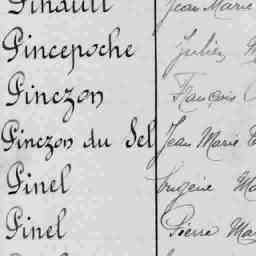 Pinault Jean Marie
Pincepoche Julien
Pinczon François
Pinczon du Sel Jean Marie
Pinel Eugène Ma
Pinel Pierre Mar